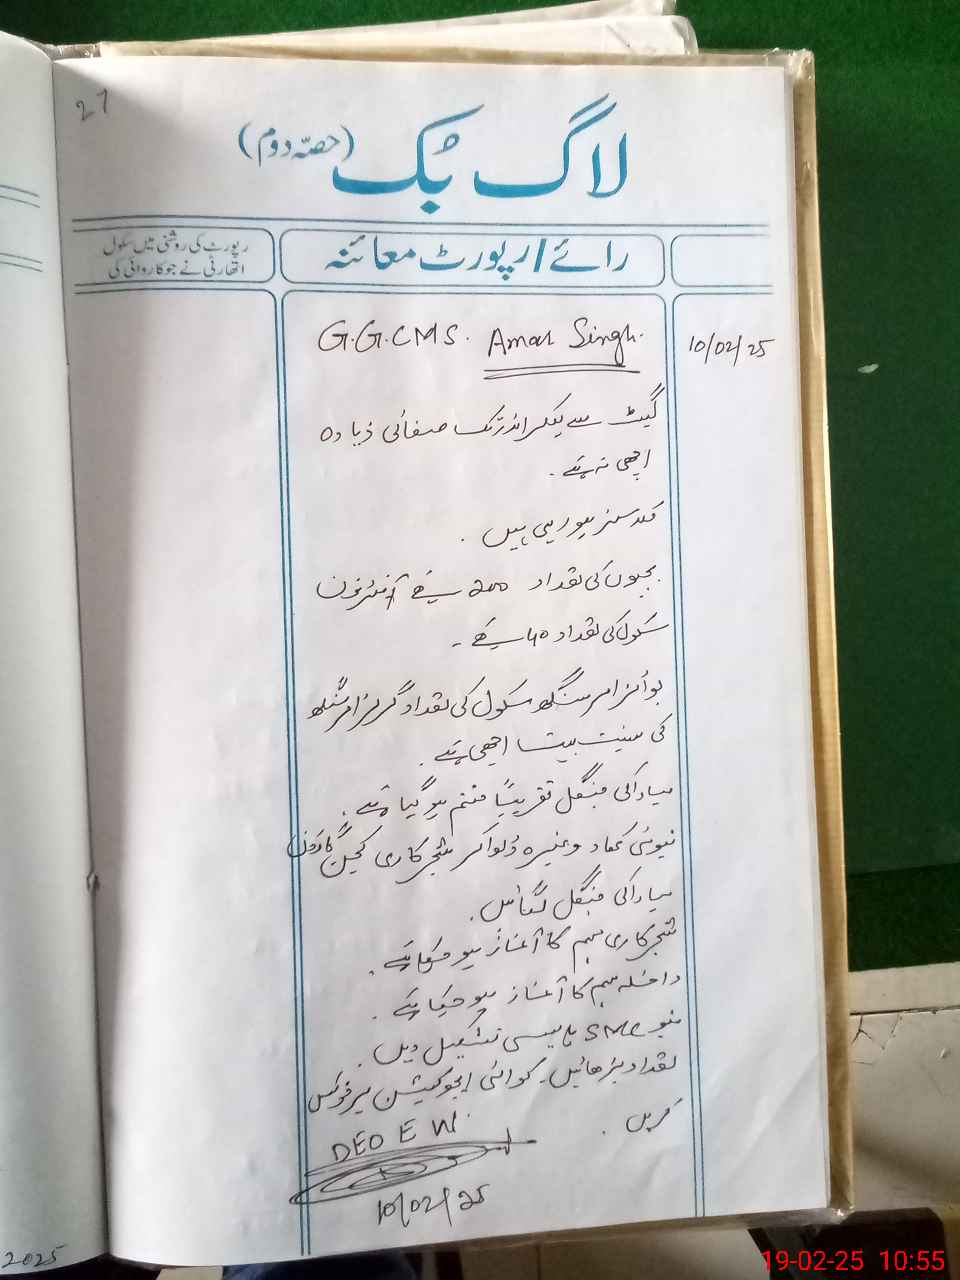 27
لاگ بُک (حصّہ دوم)
رائے/رپورٹ معائنہ
رپورٹ کی روشنی میں سکول
اتھارٹی نے جو کاروائی کی
10/02/25
G.G.CMS. Amar Singh.
گیٹ سے لیکر اندر تک صفائی زیادہ
اچھی نہ ہے۔
کلاسز ہو رہی ہیں۔
بچیوں کی تعداد 200 ہے آفٹرنون
سکول کی تعداد 40 ہے۔
بوائز امر سنگھ سکول کی تعداد گرلز امر سنگھ
کی نسبت اچھی ہے۔
میاواکی جنگل تقریباً ختم ہو گیا ہے۔
کھاد وغیرہ ڈلوا کر شجر کاری کچن گارڈن
میاواکی جنگل لگائیں۔
شجر کاری مہم کا آغاز ہو چکا ہے۔
داخلہ مہم کا آغاز ہو چکا ہے۔
نیو SMC پالیسی تشکیل دیں۔
تعداد بڑھائیں۔ کوالٹی ایجوکیشن پر فوکس
کریں۔
DEO E W.
10/02/25
2025
19-02-25 10:55